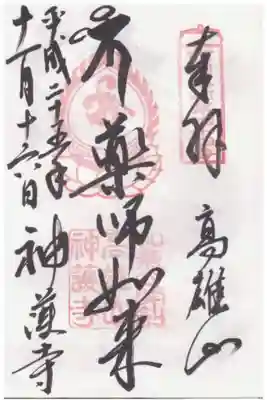 奉拝
高雄山
薬師如来
神護寺
平成二十五年
十一月十六日
神護寺